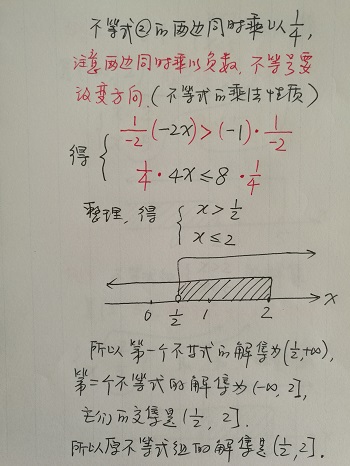 不等式②的两边同时乘以1/4,
注意两边同时乘以负数,不等号要
改变方向.(不等式的乘法性质)
得 { 1/-2 (-2x) > (-1)·1/-2
1/4 · 4x ≤ 8 · 1/4
整理,得 { x > 1/2
x ≤ 2
0 1/2 1 2 x
所以第一个不等式的解集为(1/2,+∞),
第二个不等式的解集为(-∞, 2],
它们的交集是(1/2, 2].
所以原不等式组的解集是(1/2, 2].